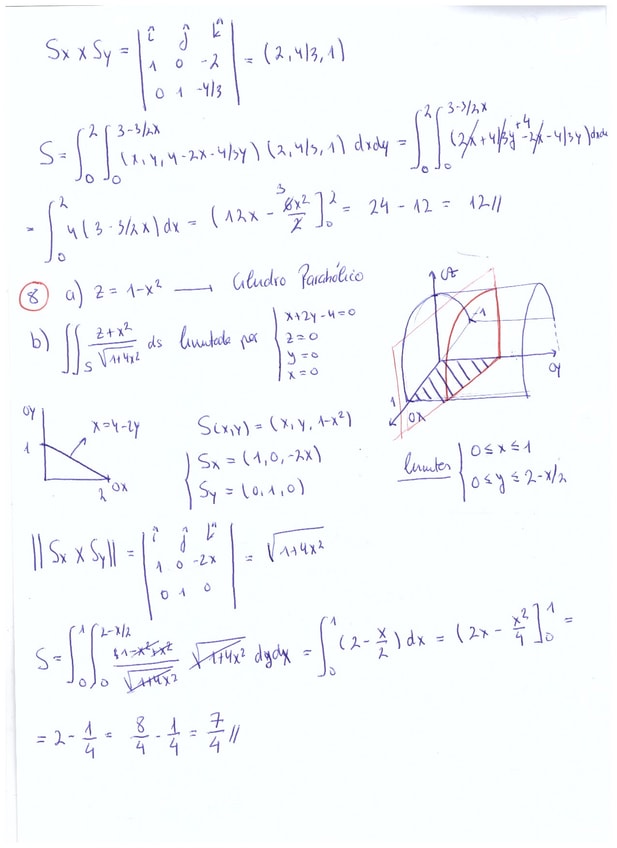 Sx x Sy = | î ĵ k̂ | = (2, 4/3, 1)
1 0 -2
0 1 -4/3
S = ∫₀² ∫₀^(3-3/2x) (x, y, 4-2x-4/3y) (2, 4/3, 1) dxdy = ∫₀² ∫₀^(3-3/2x) (2x + 4/3y +4 -2x - 4/3y) dxdy
= ∫₀² 4(3-3/2x) dx = (12x - 6x²/2 3 ]₀² = 24 - 12 = 12//
8 a) z = 1-x² → Cilindro Parabólico
b) ∬s z+x²/√1+4x² ds limitada por { x+2y-4=0
z=0
y=0
x=0
OZ
-1
OY
1
OX
OY
1
x=4-2y
2 OX
S(x,y) = (x, y, 1-x²)
{ Sx = (1, 0, -2x)
Sy = (0, 1, 0)
limites { 0≤x≤1
0≤y≤2-x/2
||Sx x Sy|| = | î ĵ k̂ | = √1+4x²
1 0 -2x
0 1 0
S = ∫₀¹ ∫₀^(2-x/2) 1-x²+x²/√1+4x² √1+4x² dydx = ∫₀¹ (2 - x/2) dx = (2x - x²/4 ]₀¹ =
= 2 - 1/4 = 8/4 - 1/4 = 7/4 //